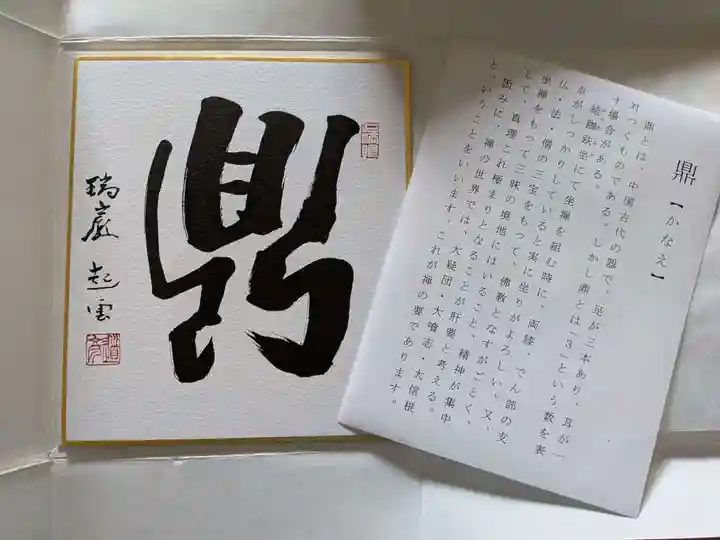 鼎
瑞巌 起雲
鼎【かなえ】
鼎とは、中国古代の器で、足が三本あり、耳が一
対つくものである。しかし鼎とは「3」という数を表
す場合がある。
結跏趺坐にて坐禅を組む時に、両膝、でん部の支
点がしっかりしていると実に坐りがよろしい。又、
仏・法・僧の三宝をもって、佛教となすがごとく、
坐禅をもって三昧の境地にはいること、精神が集中
して、真理これ極まりとなることが肝要と考える。
因みに、禅の世界では、大疑団・大噴志・大信根
と、いうことをいいます。これが禅の要であります。